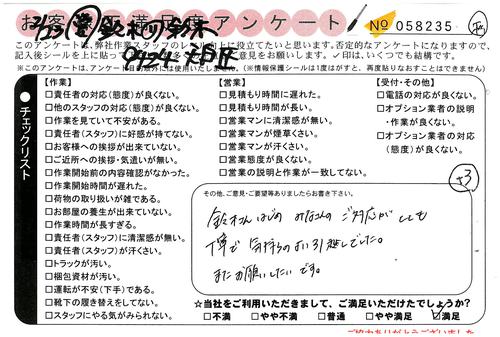 お客様満足度アンケート
№ 058235
このアンケートは、弊社作業スタッフのレベル向上に役立てたいと思います。否定的なアンケートになりますので、
記入後シールを上に貼って
意見をお願いします。✓印は、いくつでも結構です。
※このアンケートは、アンケート目的以外には使用いたしません。(※情報保護シールは1度はがすと、再度貼りなおすことはできません)
チェックリスト
【作業】
□責任者の対応(態度)が良くない。
□他のスタッフの対応(態度)が良くない。
□作業を見ていて不安がある。
□責任者(スタッフ)に好感が持てない。
□お客様への挨拶が出来ていない。
□ご近所への挨拶・気遣いが無い。
□作業開始前の内容確認がなかった。
□作業開始時間が遅れた。
□荷物の取り扱いが雑である。
□お部屋の養生が出来ていない。
□作業時間が長すぎる。
□責任者(スタッフ)に清潔感が無い。
□責任者(スタッフ)が汗くさい。
□トラックが汚い。
□梱包資材が汚い。
□運転が不安(下手)である。
□靴下の履き替えをしてない。
□スタッフにやる気がみられない。
【営業】
□見積もり時間に遅れた。
□見積もり時間が長い。
□営業マンに清潔感が無い。
□営業マンが煙草くさい。
□営業マンが汗くさい。
□営業態度が良くない。
□営業の説明と作業が一致してない。
【受付・その他】
□電話の対応が良くない。
□オプション業者の説明
・作業が良くない。
□オプション業者の対応
(態度)が良くない。
その他、ご意見・ご要望等ありましたらお書き下さい。
鈴木さんはじめ みなさんの ご対応が とても
丁寧で 気持ちのよい引越しでした。
また お願いしたい です。
☆当社をご利用いただきまして、ご満足いただけたでしょうか？
□不満 □やや不満 □普通 □やや満足 ☑満足
ご協力ありがとうございました